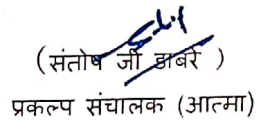 (संतोष जी डाबरे )
प्रकल्प संचालक (आत्मा)